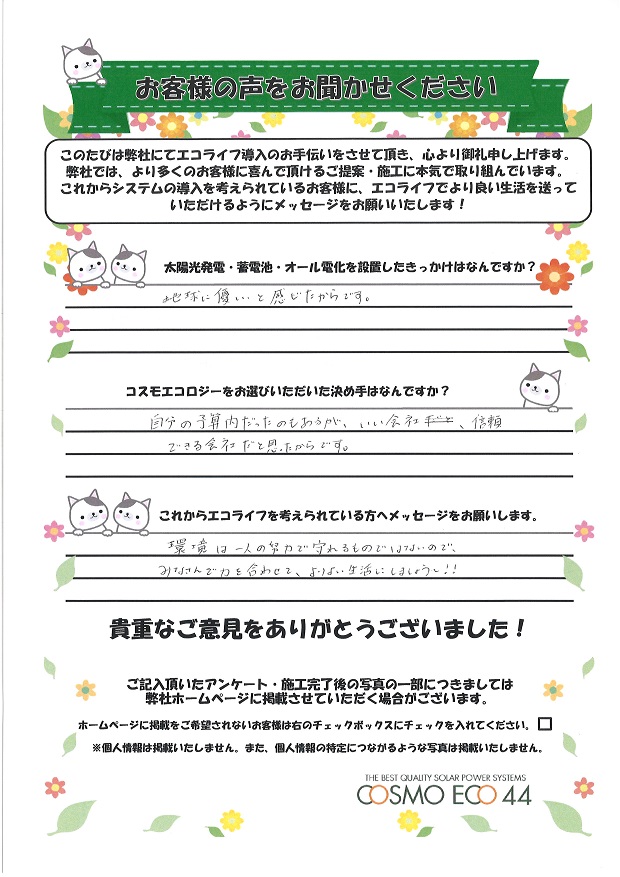 お客様の声をお聞かせください
このたびは弊社にてエコライフ導入のお手伝いをさせて頂き、心より御礼申し上げます。
弊社では、より多くのお客様に喜んで頂けるご提案・施工に本気で取り組んでいます。
これからシステムの導入を考えられているお客様に、エコライフでより良い生活を送って
いただけるようにメッセージをお願いいたします！
太陽光発電・蓄電池・オール電化を設置したきっかけはなんですか？
地球に優しいと感じたからです。
コスモエコロジーをお選びいただいた決め手はなんですか？
自分の予算内だったのもあるが、いい会社、信頼
できる会社だと思ったからです。
これからエコライフを考えられている方へメッセージをお願いします。
環境は一人の努力で守れるものではないので、
みなさんで力を合わせて、よりよい生活にしましょう!!
貴重なご意見をありがとうございました！
ご記入頂いたアンケート・施工完了後の写真の一部につきましては
弊社ホームページに掲載させていただく場合がございます。
ホームページに掲載をご希望されないお客様は右のチェックボックスにチェックを入れてください。
※個人情報は掲載いたしません。また、個人情報の特定につながるような写真は掲載いたしません。
THE BEST QUALITY SOLAR POWER SYSTEMS
COSMO ECO 44